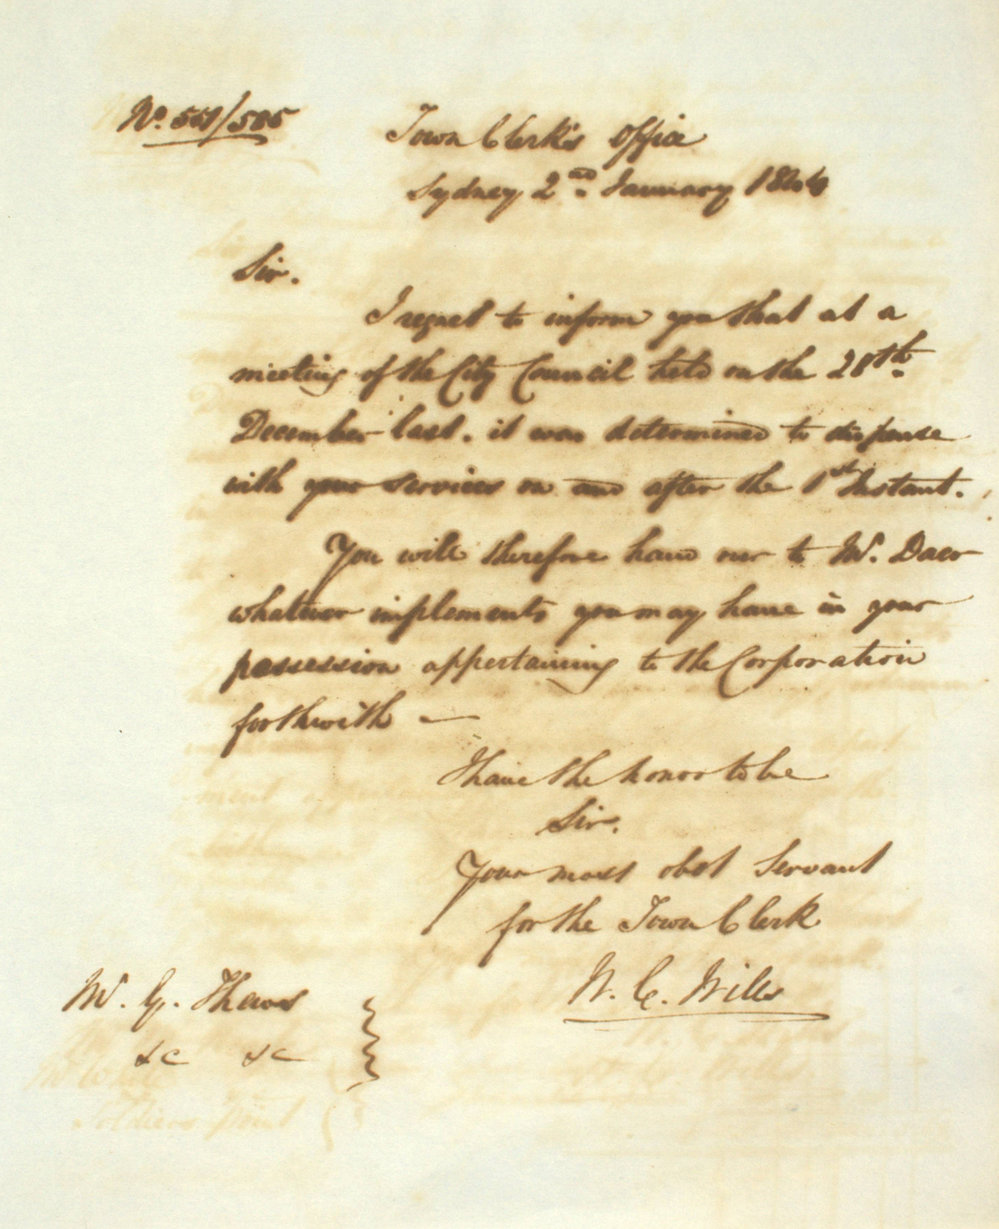 No. 551/505
Town Clerk's Office
Sydney 2nd January 1844
Sir.
I regret to inform you that at a
meeting of the City Council held on the 28th
December last. it was determined to dispense
with your services on and after the 1st Instant.
You will therefore hand over to Mr. Daer
whatever implements you may have in your
possession appertaining to the Corporation
forthwith —
I have the honor to be
Sir.
Your most obet Servant
for the Town Clerk
W. C. Wills
Mr. G. Thews
&c &c